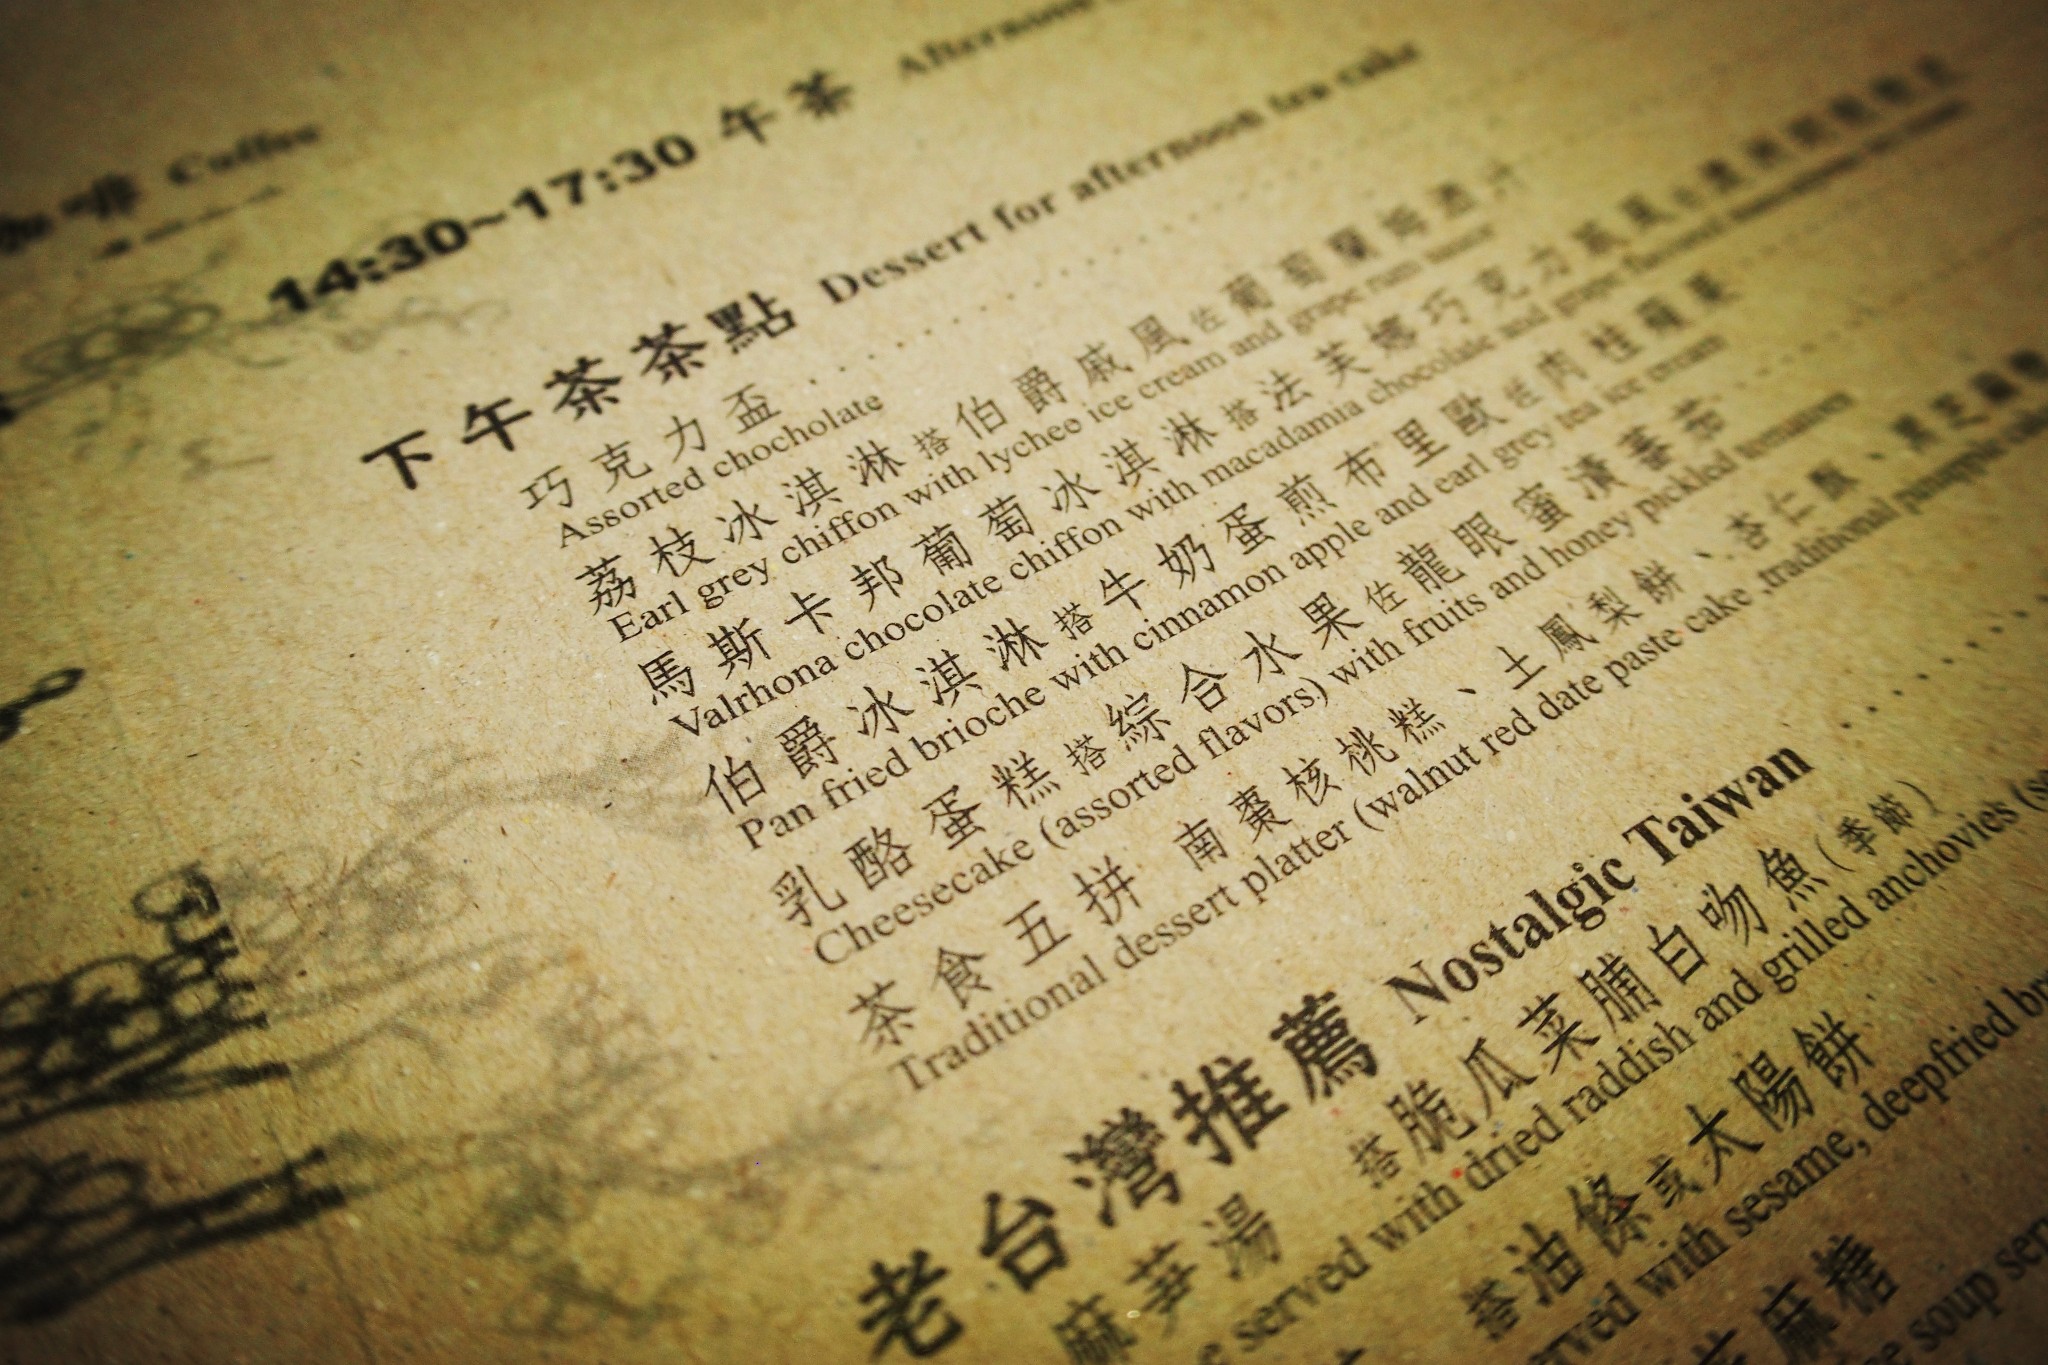 咖啡 Coffee
14:30~17:30 午茶 Afternoon
下午茶茶點 Dessert for afternoon tea cake
巧克力盃
Assorted chocholate
荔枝冰淇淋搭伯爵戚風佐葡萄蘭姆酒汁
Earl grey chiffon with lychee ice cream and grape rum sauce
馬斯卡邦葡萄冰淇淋搭法芙娜巧克力戚風
Valrhona chocolate chiffon with macadamia chocolate and grape flavored
伯爵冰淇淋搭牛奶蛋煎布里歐佐肉桂蘋果
Pan fried brioche with cinnamon apple and earl grey tea ice cream
乳酪蛋糕搭綜合水果佐龍眼蜜漬蕃茄
Cheesecake (assorted flavors) with fruits and honey pickled tomatoes
茶食五拼 南棗核桃糕、土鳳梨餅、杏仁酥、黑芝麻
Traditional dessert platter (walnut red date paste cake ,traditional pinapple cake
老台灣推薦 Nostalgic Taiwan
麻芛湯 搭脆瓜菜脯白吻魚(季節)
served with dried raddish and grilled anchovies
搭油條或太陽餅
served with sesame, deepfried
麻糖
soup